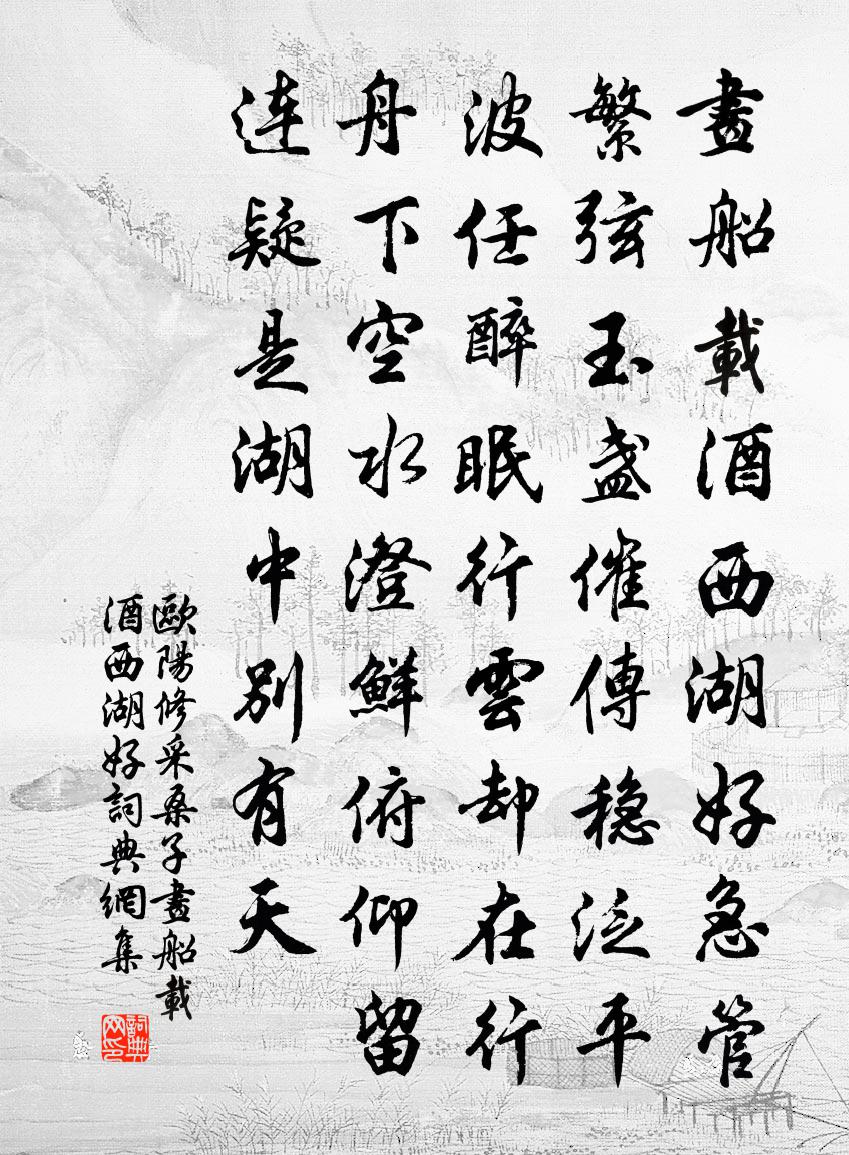 畫船載酒西湖好急管
繁弦玉盞催傳稳泛平
波任醉眠行雲却在行
舟下空水澄鮮俯仰留
連疑是湖中別有天
歐陽修采桑子畫船載
酒西湖好詞典網集
詞典
网印